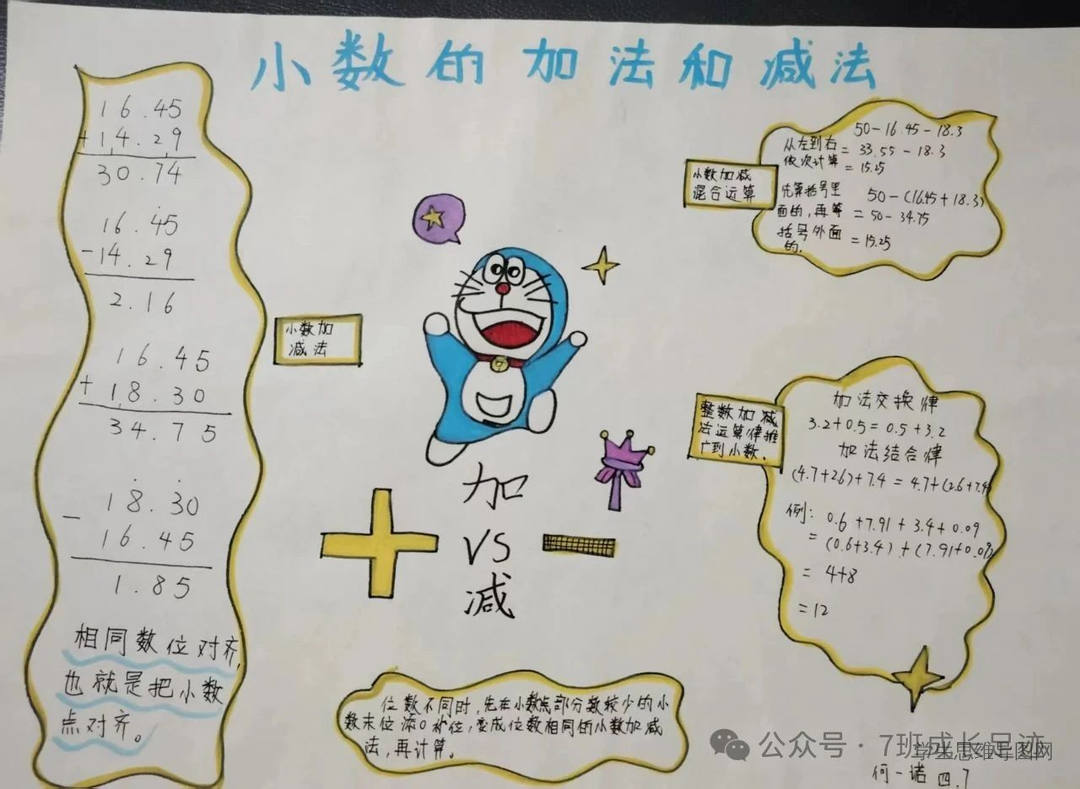 小数的加法和减法
16.45
+14.29
30.74
16.45
-14.29
2.16
16.45
+18.30
34.75
18.30
-16.45
1.85
相同数位对齐,
也就是把小数
点对齐。
小数加
减法
加
VS
减
位数不同时,先在小数点部分数较少的小
数末位添0补位,变成位数相同的小数加减
法,再计算。
小数加减
混合运算
50-16.45-18.3
从左到右 = 33.55-18.3
依次计算 = 15.25
先算括号里 50-(16.45+18.3)
面的,再算 = 50-34.75
括号外面 = 15.25
的.
整数加减
法运算律推
广到小数.
加法交换律
3.2+0.5=0.5+3.2
加法结合律
(4.7+2.6)+7.4=4.7+(2.6+7.4)
例: 0.6+7.91+3.4+0.09
= (0.6+3.4)+(7.91+0.09)
= 4+8
=12
公众号·7班成长足迹
学生思维导图网
何一诺 四.7